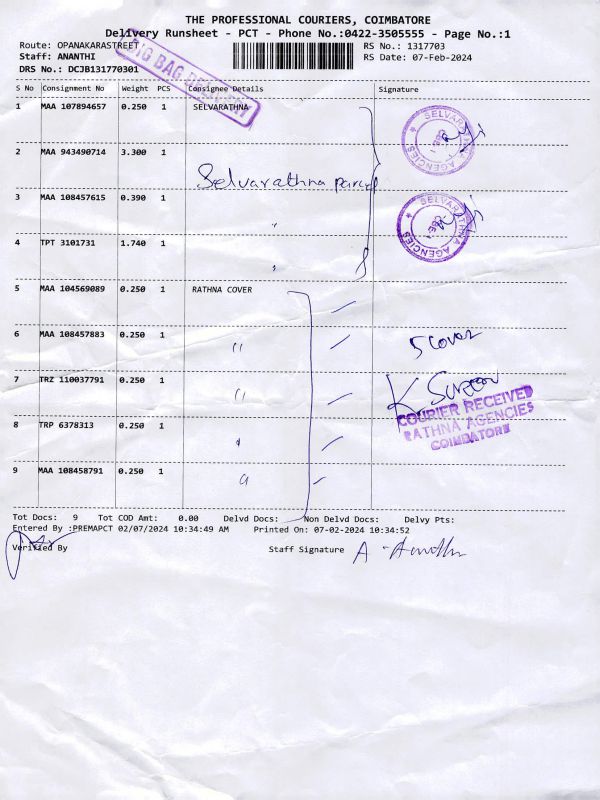 THE PROFESSIONAL COURIERS, COIMBATORE
Delivery Runsheet - PCT - Phone No.:0422-3505555 - Page No.:1
Route: OPANAKARASTREET
RS No.: 1317703
Staff: ANANTHI
RS Date: 07-Feb-2024
DRS No.: DCJB131770301
BIG BAG DELIVERY
S No Consignment No Weight PCS Consignee Details Signature
1 MAA 107894657 0.250 1 SELVARATHNA
SELVARATHNA AGENCIES
2 MAA 943490714 3.300 1
Selvarathna parcel
3 MAA 108457615 0.390 1 "
SELVARATHNA AGENCIES
4 TPT 3101731 1.740 1 "
5 MAA 104569089 0.250 1 RATHNA COVER
6 MAA 108457883 0.250 1 "
5 Cover
7 TRZ 110037791 0.250 1 "
COURIER RECEIVED
RATHNA AGENCIES
COIMBATORE
8 TRP 6378313 0.250 1 "
9 MAA 108458791 0.250 1 "
Tot Docs: 9 Tot COD Amt: 0.00 Delvd Docs: Non Delvd Docs: Delvy Pts:
Entered By :PREMAPCT 02/07/2024 10:34:49 AM Printed On: 07-02-2024 10:34:52
Verified By Staff Signature